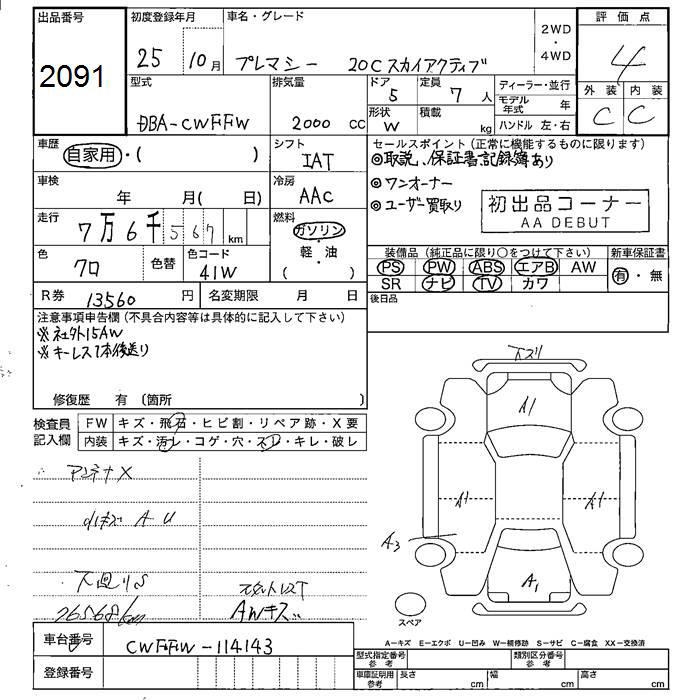 出品番号 初度登録年月 車名・グレード 2WD・4WD 評価点
2091 25 10月 プレマシー 20Cスカイアクティブ 4
型式 排気量 ドア 5 定員 7人 ディーラー・並行 外装 内装
DBA-CWFFW 2000 cc 形状 W 積載 kg モデル年式 年 C C
ハンドル 左・右
車歴 自家用・( ) シフト IAT セールスポイント(正常に機能するものに限ります)
◎取説、保証書記録簿あり
車検 年 月( 日) 冷房 AAC ◎ワンオーナー
◎ユーザー買取り
初出品コーナー
AA DEBUT
走行 7万6千567km 燃料 ガソリン・軽・油( )
色 クロ 色替 色コード 41W
装備品(純正品に限り○をつけて下さい) 新車保証書
PS PW ABS エアB AW 有・無
SR ナビ TV カワ
R券 13560円 名変期限 月 日 後日品
注意事項申告欄(不具合内容等は具体的に記入して下さい)
※社外15AW
※キーレス1本後送り
修復歴 有(箇所 )
検査員記入欄 FW キズ・飛石・ヒビ割・リペア跡・X要
内装 キズ・汚レ・コゲ・穴・スレ・キレ・破レ
アンテナX
小キズ A U
下廻りS
76568km
AWキズ
下スリ
A1
A1
A1
A3
A1
スペア
A−キズ E−エクボ U−凹み W−補修跡 S−サビ C−腐食 XX−交換済
車台番号 CWFFW-114143 型式指定番号 参考 類別区分番号 参考
登録番号 車庫証明用 参考 長さ cm 幅 cm 高さ cm